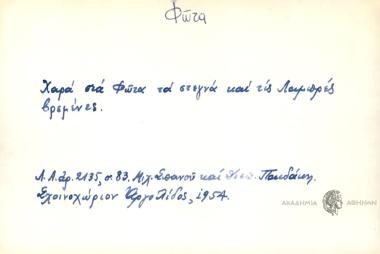 Φῶτα
Χαρά στά Φῶτα τά στεγνά καί τίς Λαμπρές
βρεμένες.
Λ.Α. ἀρ. 2135, σ. 83. Μιχ. Σπανοῦ καί
Σχοινοχώριον Ἀργολίδος, 1954.
ΑΚΑΔΗΜΙΑ ΑΘΗΝΩΝ